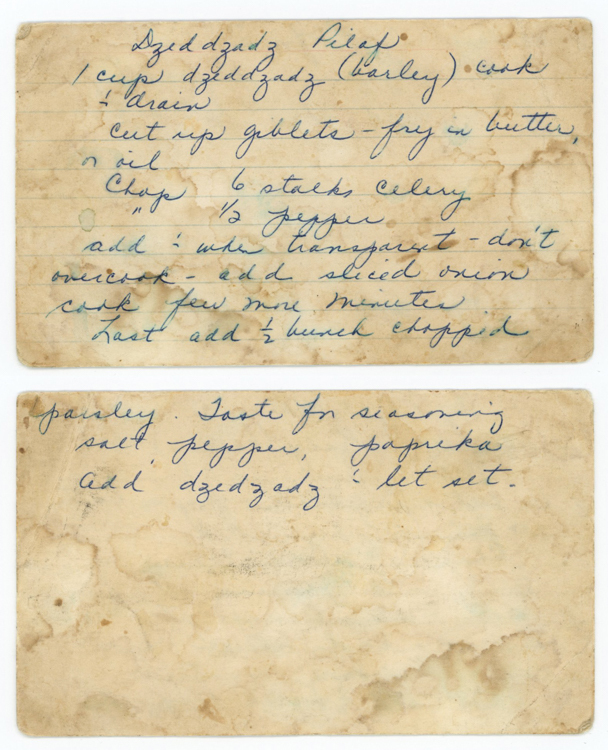 Dzeddzadz Pilaf
1 cup dzeddzadz (barley) cook
& drain
cut up giblets - fry in butter,
or oil
Chop 6 stalks celery
" 1/2 pepper
add & when transparent - don't
overcook - add sliced onion
cook few more minutes
Last add 1/2 bunch chopped
parsley. Taste for seasoning
salt, pepper, paprika
add dzedzadz & let set.